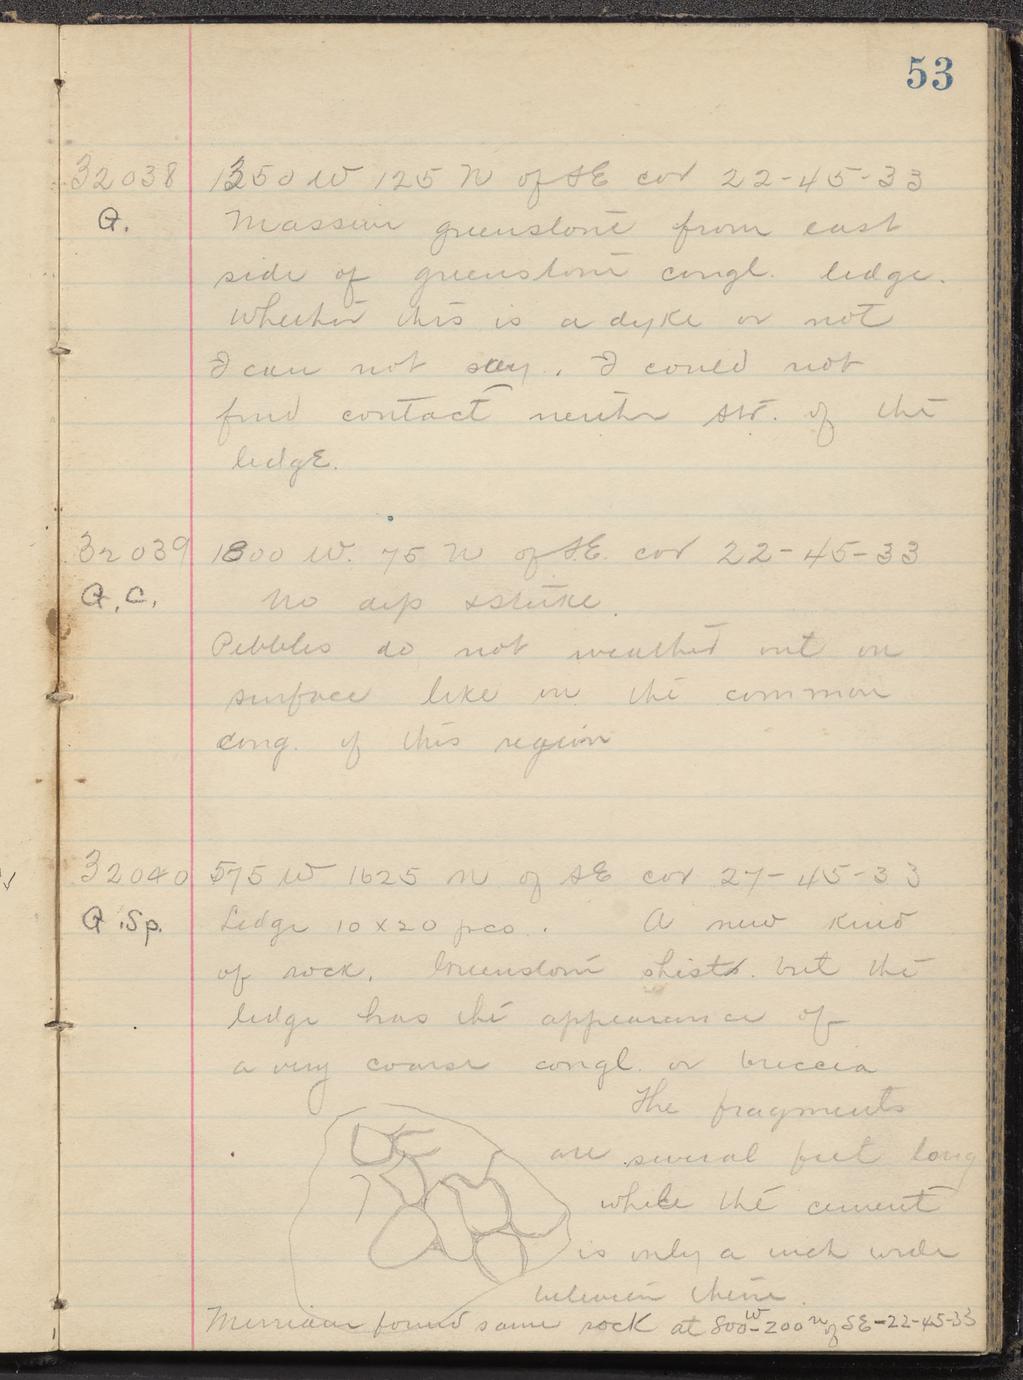 53
32038 1350 W 125 N of SE cor 22-45-33
G. Massive greenstone from east
side of greenstone congl. ledge.
Whether this is a dyke or not
I can not say. I could not
find contact neither of the
ledge.
32039 1800 W. 75 N of S.E. cor 22-45-33
G.C. No dip & strike.
Pebbles do not weather out on
surface like in the common
cong. of this region
32040 575 W 1625 N of SE cor 27-45-33
G.Sp. Ledge 10 x 20 pcs. A new kind
of rock. Greenstone shist. but the
ledge has the appearance of
a very coarse congl. or breccia
The fragments
are several feet long
while the cement
is only a inch wide
between them.
Merriam found same rock at 800 W-200 N of SE-22-45-33